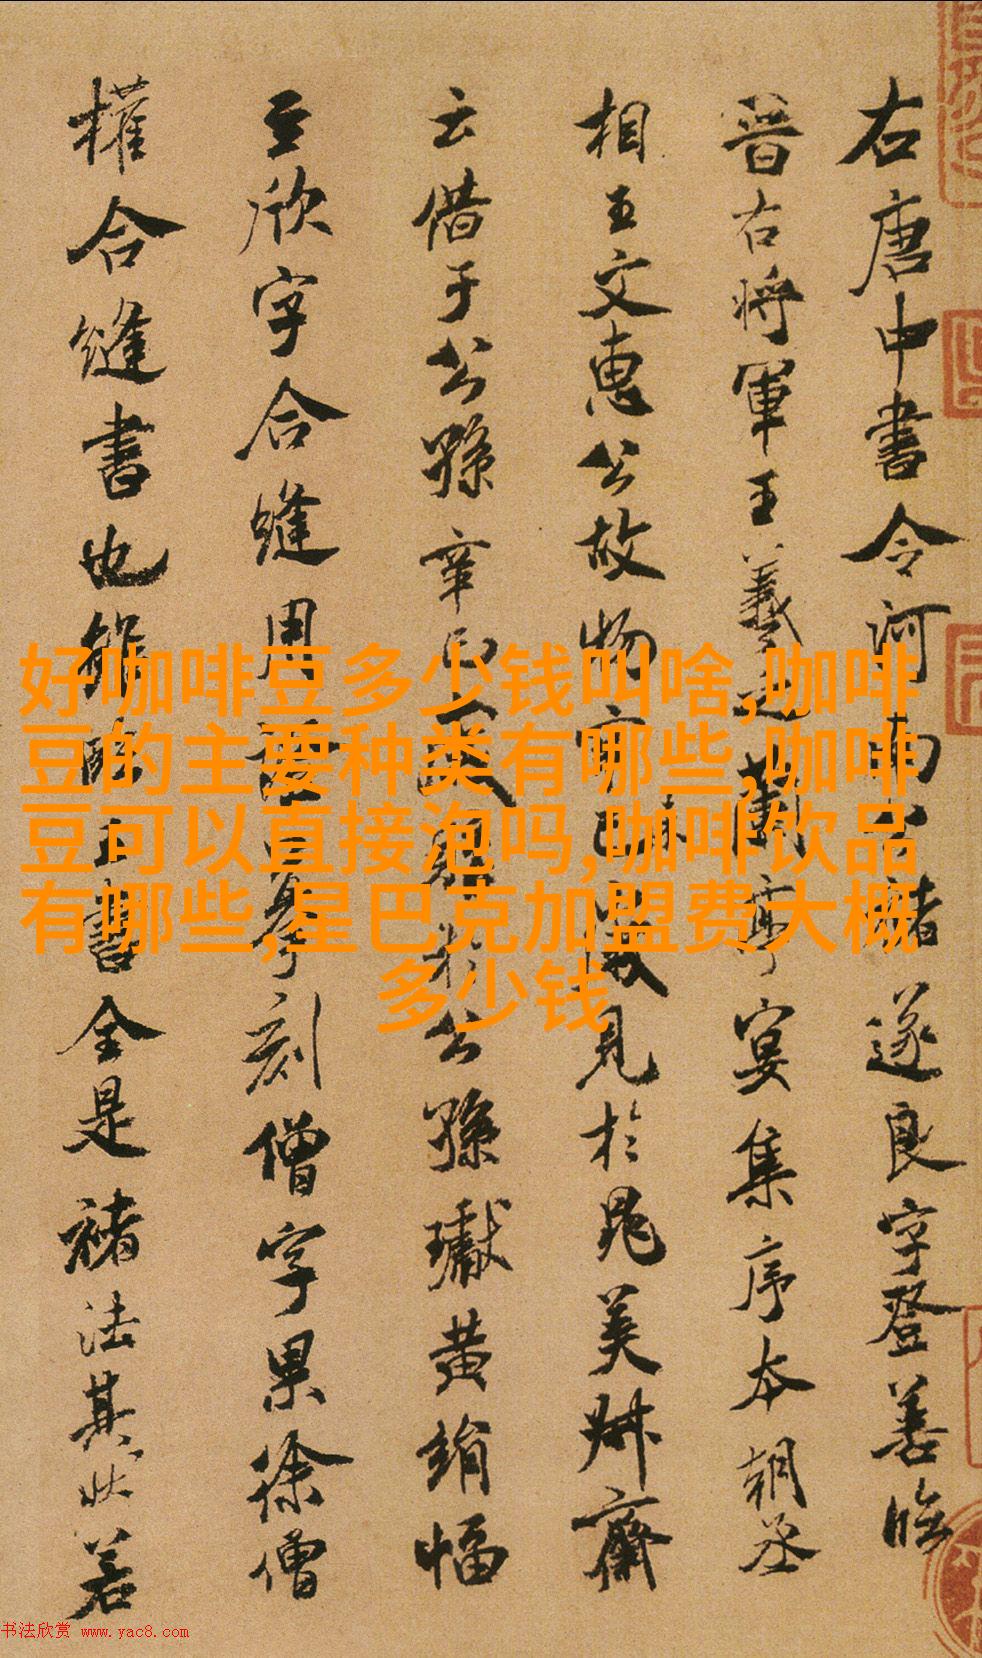 右唐中書令河南褚遂良字登善臨
晉右將軍王羲之蘭亭宴集序本朝丞
相王文惠公故物
見於晁美叔齋
云借于公孫
公孫瓛黃絹幅
至欣字合縫用
刻僧字果徐僧
權合縫書也雖
書全是褚法其狀若
好咖啡豆多少钱叫啥,咖啡
豆的主要种类有哪些,咖啡
豆可以直接泡吗,咖啡饮品
有哪些,星巴克加盟费大概
多少钱
书法欣赏 www.yac8.com